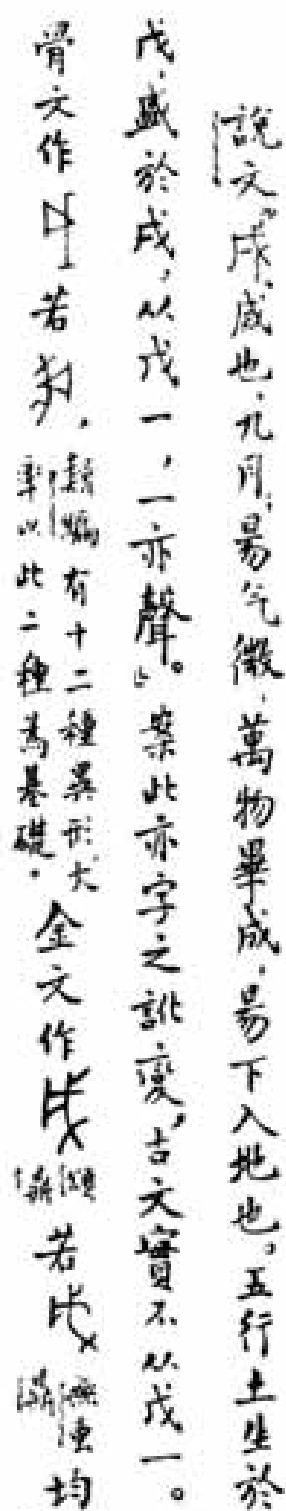 說文「戌，威也，九月，昜气微，萬物畢成，昜下入地也。五行土生於
戊，盛於戌，从戊一，一亦聲。」案此亦字之訛變，古文實不从戊一。
骨文作若，類編有十二種異形大率以此二種為基礎。金文作鼎若均